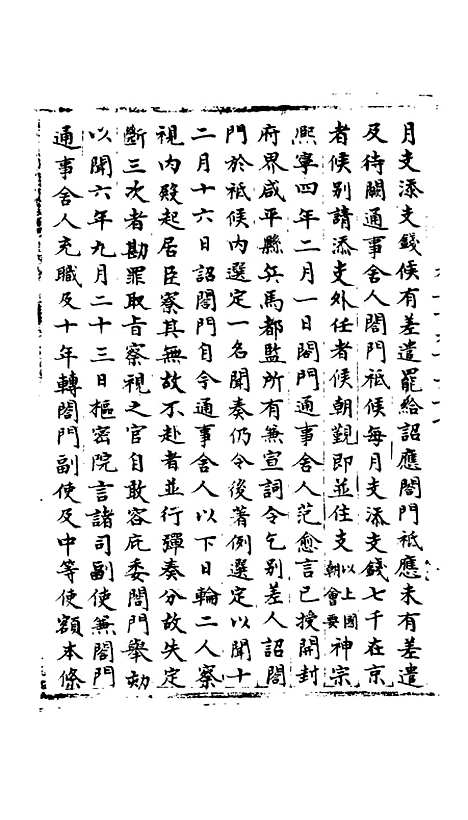 月支添支錢候有差遣罷給詔應閤門祗應未有差遣
及待闕通事舍人閤門祗候每月支添支錢七千在京
者候別請添支外任者候朝覲即並住支以上國朝會要神宗
熙寧四年二月一日閤門通事舍人范愈言已授開封
府界咸平縣兵馬都監所有兼宣詞令乞別差人詔閤
門於祗候內選定一名聞奏仍令後著例選定以聞十
二月十六日詔閤門自今通事舍人以下日輪二人察
視內殿起居臣寮其無故不赴者並行彈奏分故失定
斷三次者勘罪取旨察視之官自敢容庇委閤門舉劾
以聞六年九月二十三日樞密院言諸司副使兼閤門
通事舍人充職及十年轉閤門副使及中等使額本條